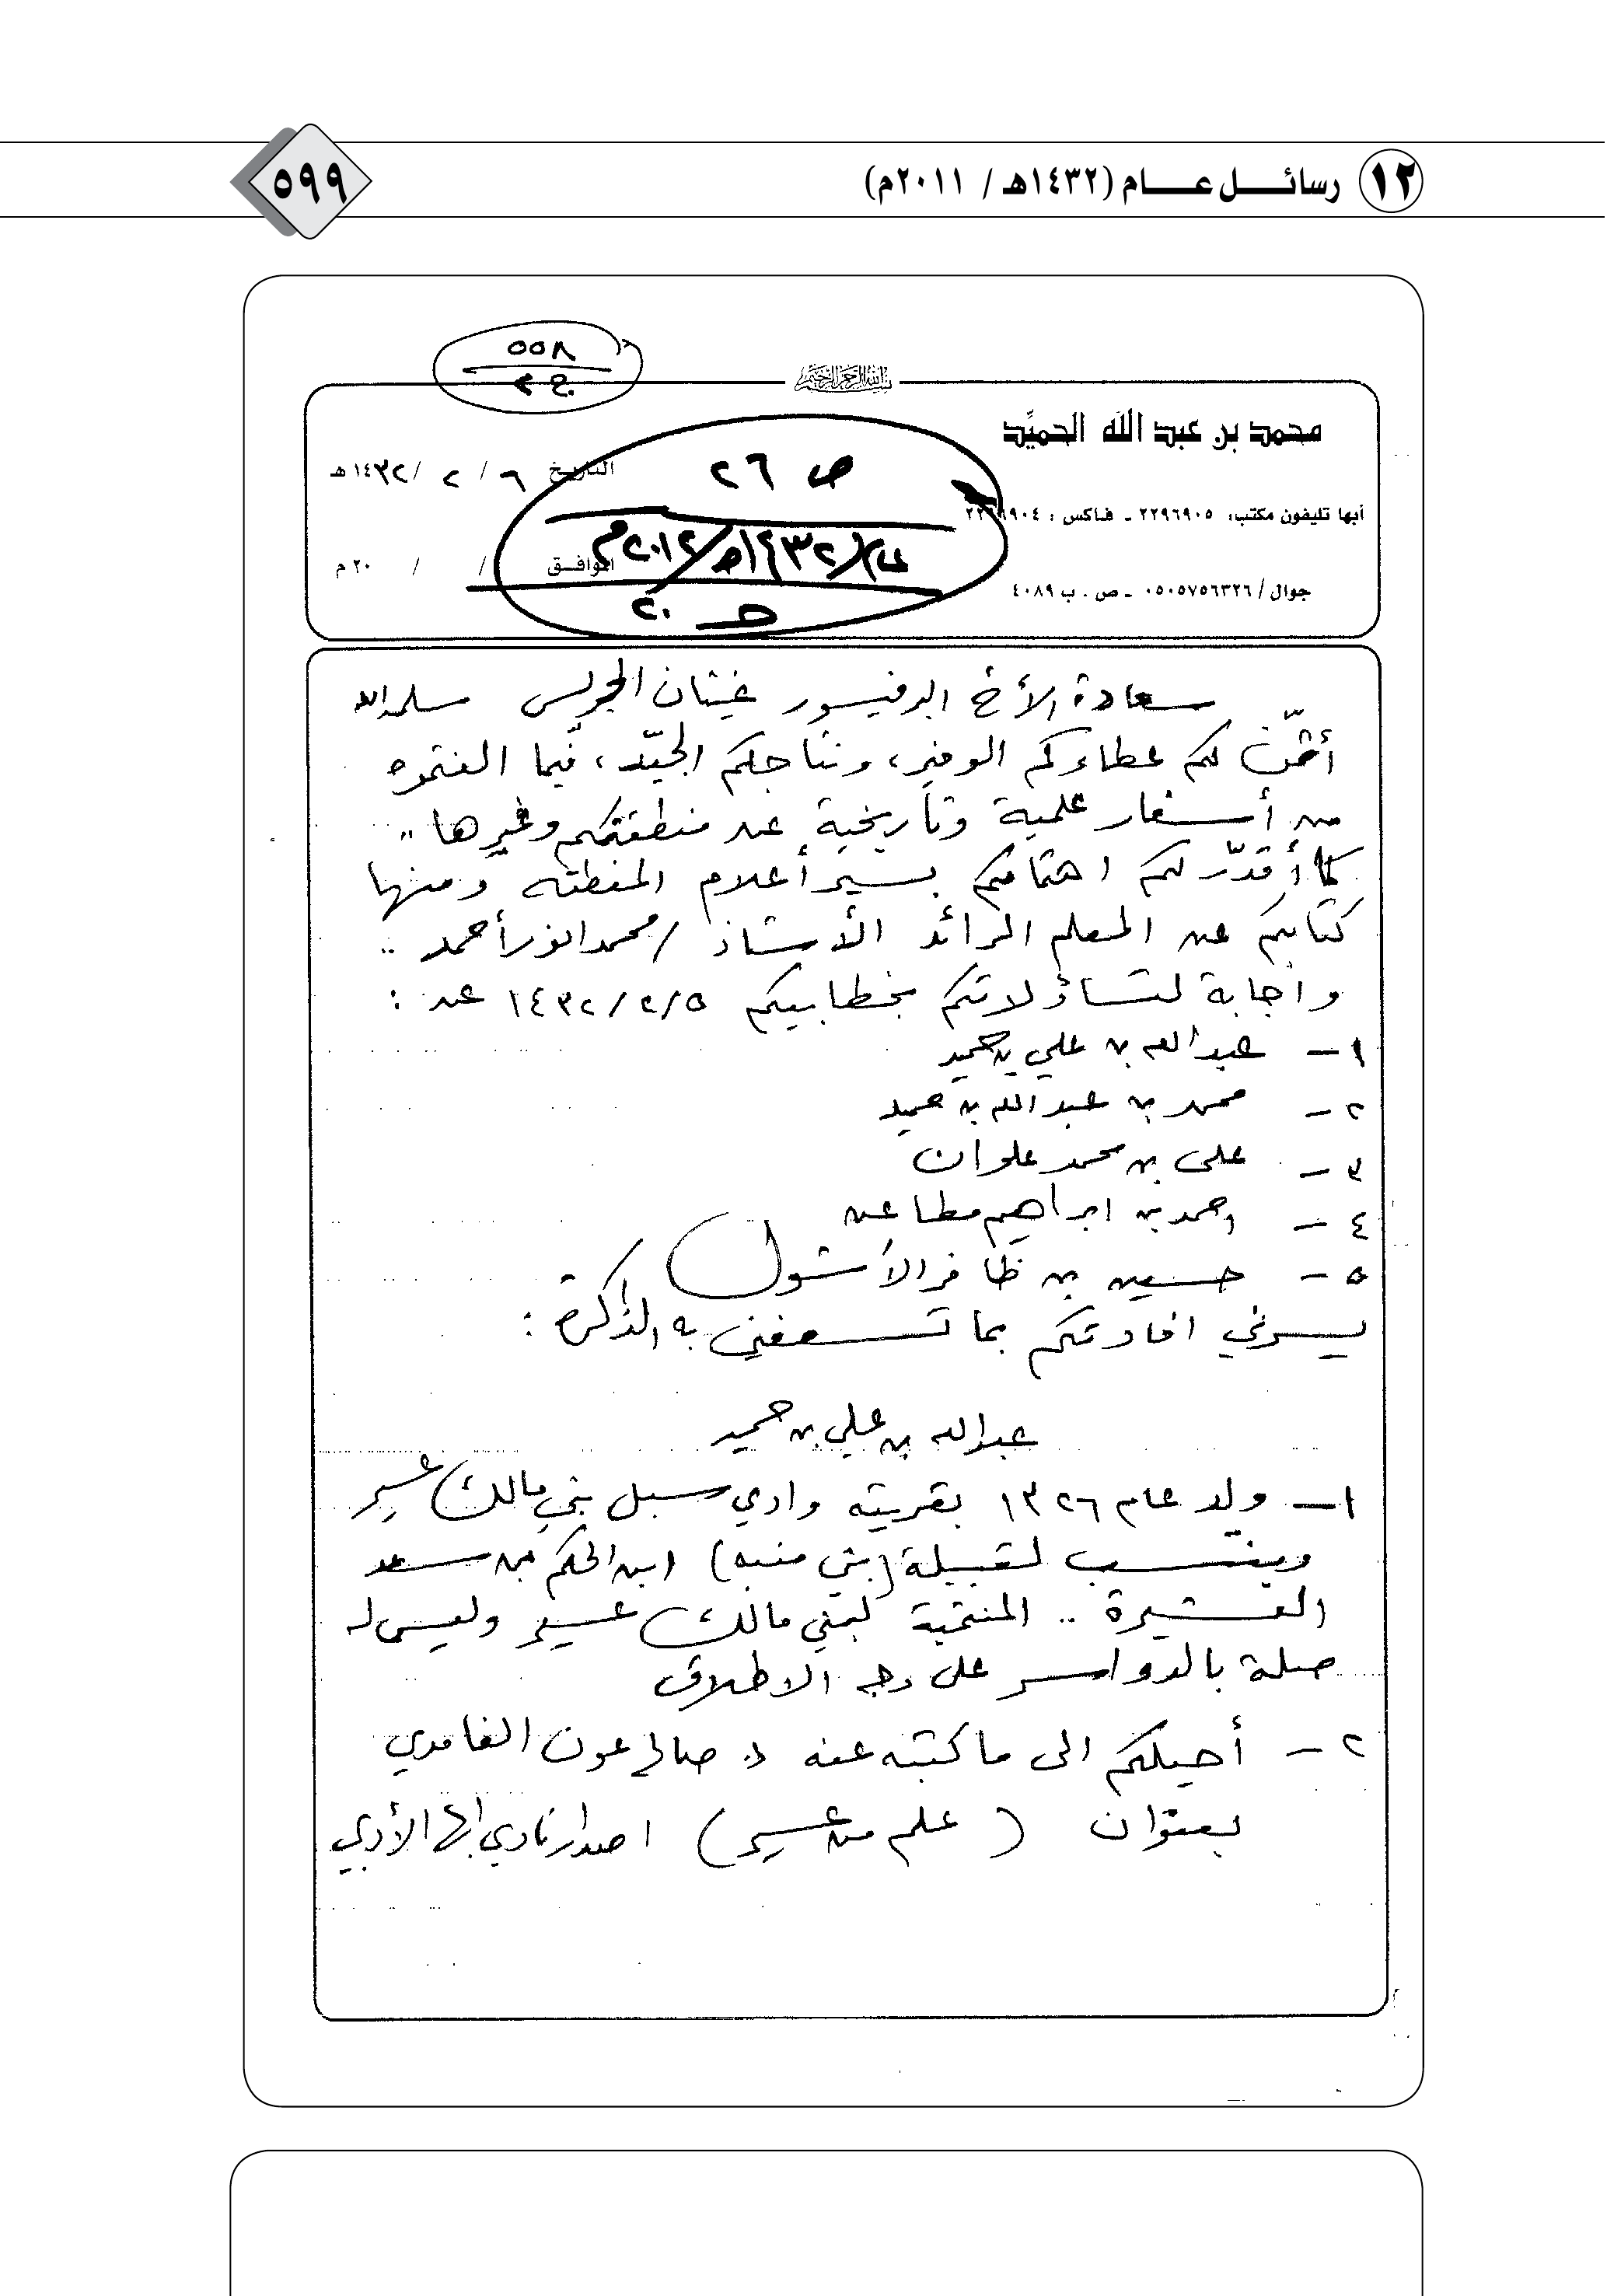 ١٢ رسائل عام (١٤٣٢هـ / ٢٠١١م)
٥٩٩
٥٥٨
ج ٢
بسم الله الرحمن الرحيم
محمد بن عبد الله الحميّد
أبها تليفون مكتب: ٢٢٩٦٩٠٥ ـ فاكس : ٢٢٦٩٩٠٤
جوال / ٠٥٠٥٧٥٦٣٢٦ ـ ص . ب ٤٠٨٩
التاريخ ٦ / ٢ / ١٤٣٢هـ
الموافق / / ٢٠ م
ص ٢٦
١٤٣٢هـ/٢٠١٢م
حـ ٢٠
سعادة الأخ البرفيسور غيثان الجريس سلمه الله
أثمّن لكم عطاءكم الوفير، ونتاجكم الجيّد، فيما ألفتموه
من أسفار علمية وتأريخية عن منطقتكم وغيرها ..
كما أقدّر لكم اهتمامكم بسير أعلام المنطقة ومنها
كتابكم عن المعلم الرائد الأستاذ / محمد انور أحمد ..
واجابة لتساؤلاتكم بخطابيكم ١٤٣٢/٢/٥ عن :
١ - عبدالله بن علي بن حميد
٢ - محمد بن عبدالله بن حميد
٣ - علي بن محمد علوان
٤ - احمد بن ابراهيم مطاعن
٥ - حسين بن ظافر الأشول
يسرني افادتكم بما تسعفني به الذاكرة :
عبدالله بن علي بن حميد
١ - ولد عام ١٣٢٦ بقريته وادي سبل بني مالك عسير
وينتسب لقبيلة (بني منبه) ابن الحكم بن سعد
العشيرة .. المنتمية لبني مالك عسير وليس له
صلة بالدواسر على وجه الاطلاق
٢ - أحيلكم الى ما كتبه عنه د. صالح عون الغامدي
بعنوان (علم من عسير) اصدار نادي ابها الأدبي